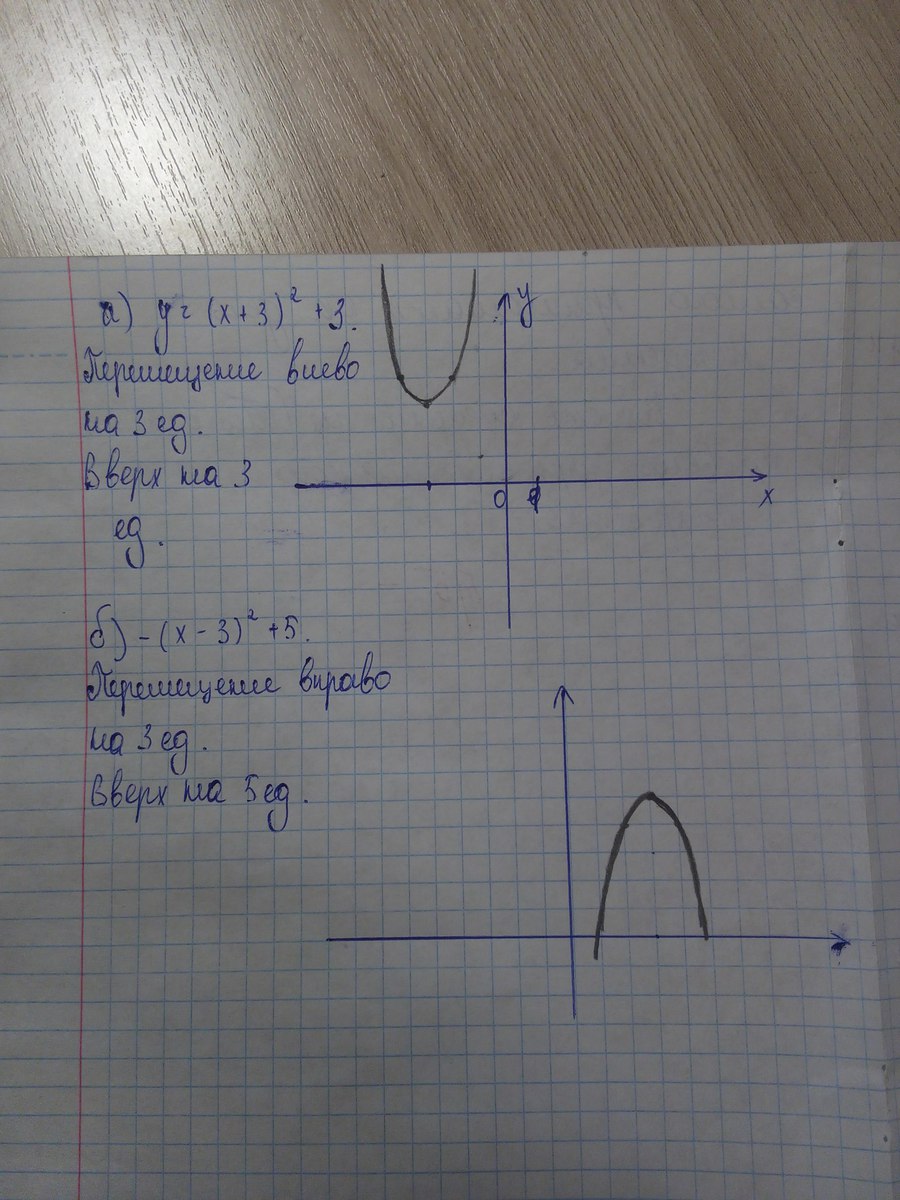 а) y = (x + 3)² + 3.
Перемещение влево
на 3 ед.
Вверх на 3
ед.
y
0
x
б) - (x - 3)² + 5.
Перемещение вправо
на 3 ед.
Вверх на 5 ед.